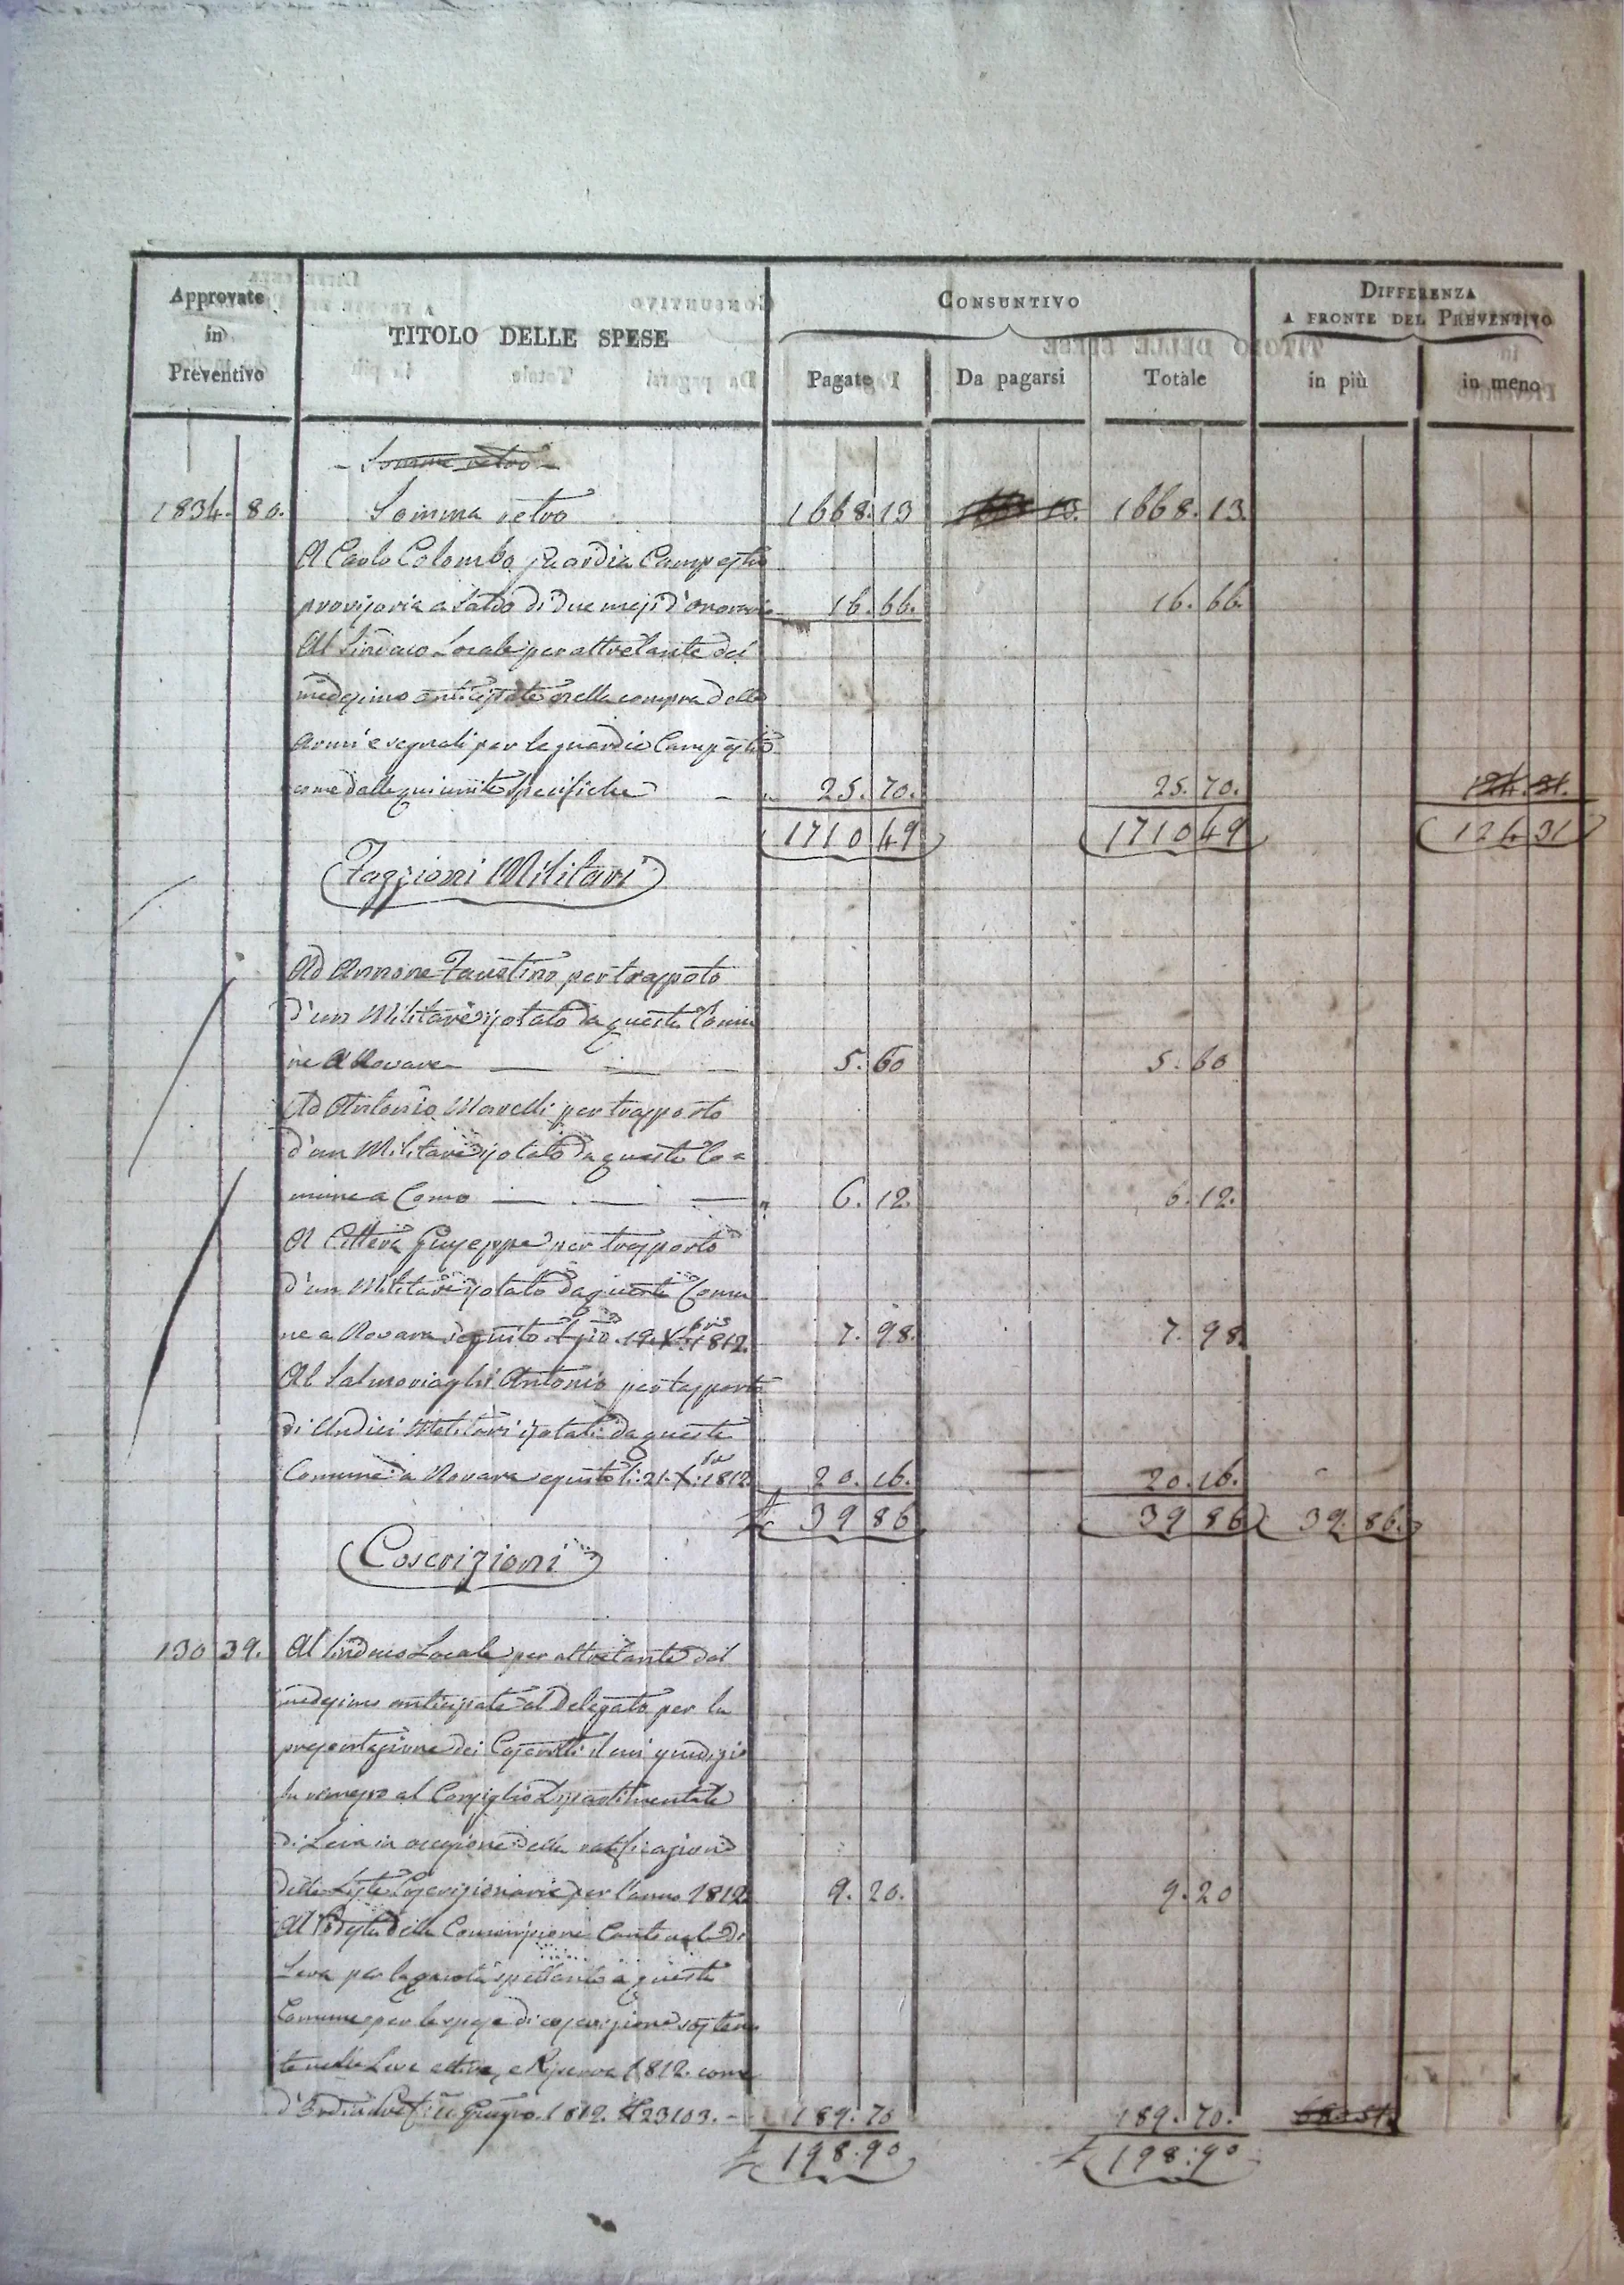 Approvate in Preventivo
TITOLO DELLE SPESE
CONSUNTIVO
Pagate
Da pagarsi
Totale
DIFFERENZA
A FRONTE DEL PREVENTIVO
in più
in meno
- Somma retro -
1834. 80. Somma retro 1668. 13 1668 13. 1668. 13.
A Carlo Colombo Guardia Campestre
provisoria a saldo di due mesi d'onorario 16. 66. 16. 66.
Al Sindaco Locale per altretante dal
medesimo anticipate nella compra delle
armi e segnali per le guardie Campestri
come dalle qui unite Specifiche - 25. 70. 25. 70. 124. 31.
1710 49 1710 49 124 31
Fazzioni Militari
Ad Annone Faustino per trasporto
d'un Militare isolato da questo Comu
ne a Novara 5. 60 5. 60
Ad Antonio Marelli per trasporto
d'un Militare isolato da questo Co=
mune a Como 6. 12. 6. 12.
A Citterà Giuseppe per trasporto
d'un Militare isolato da questo Comu
ne a Novara seguito il gio. 19. Xbre 1812. 7. 98. 7. 98.
Al Salmoiraghi Antonio per trasporto
di Undici Militari isolati da questo
Comune a Novara seguito li 21. X.bre 1812. 20. 16. 20. 16.
39 86 39 86 39. 86.
Coscrizioni
130 39. Al Sindaco Locale per altretante dal
medesimo anticipate al Delegato per la
presentazione dei Coscritti il cui giudizio
fu rimesso al Consiglio Dipartimentale
di Leva in occasione della rattificazione
delle Liste Coscrizionarie per l'anno 1812 9. 20. 9. 20
Al Podestà della Commissione Cantonale di
Leva per la quota spettante a questo
Comune per le spese di coscrizione sosten
te nelle Leve attiva, e Riserva 1812. come
d'Ord. Giugno. 1812. N 23103. - 189. 70 189. 70. 68. 51.
198. 90 198. 90